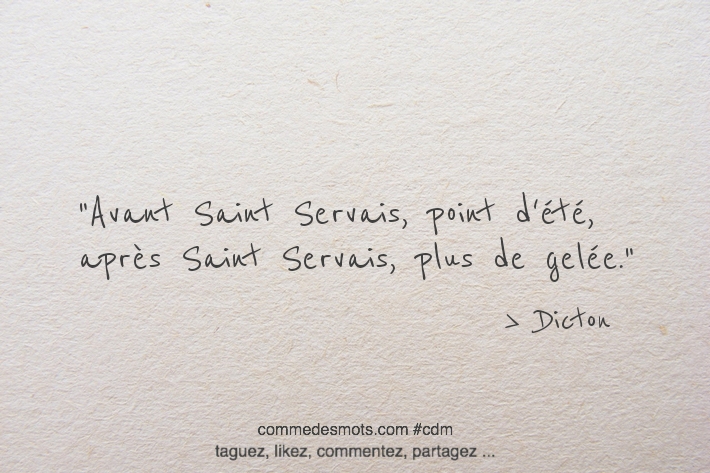 "Avant Saint Servais, point d'été,
après Saint Servais, plus de gelée."
> Dicton
commedesmots.com #cdm
taguez, likez, commentez, partagez ...